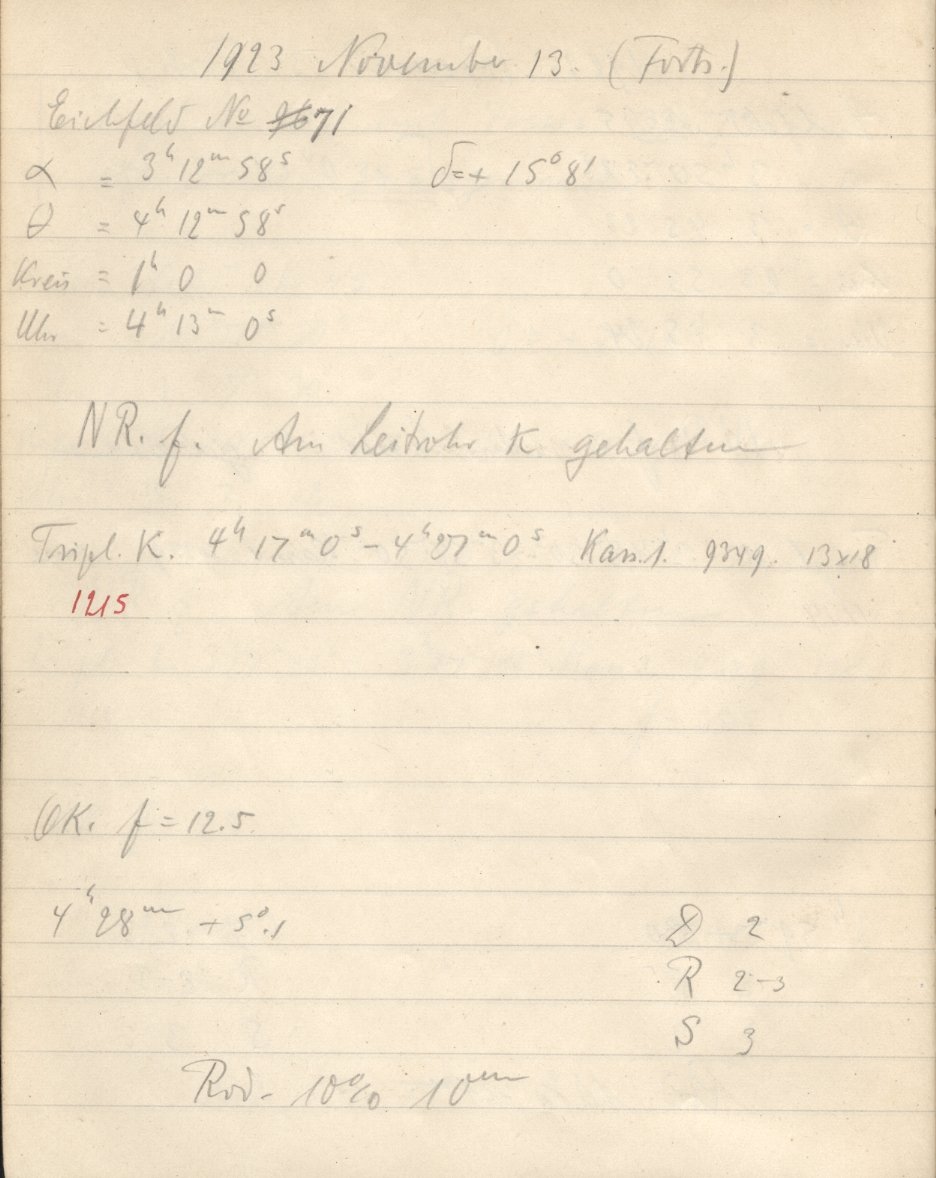 1923 November 13. (Forts.)
Eichfeld No 71
α = 3ʰ 12ᵐ 58ˢ δ=+ 15° 8'
θ = 4ʰ 12ᵐ 58ˢ
Kreis = 1ʰ 0 0
Uhr = 4ʰ 13ᵐ 0ˢ
NR. f. Am Leitrohr K gehalten
Tripl. K. 4ʰ 17ᵐ 0ˢ - 4ʰ 27ᵐ 0ˢ Kass. 1. 9349. 13x18
1215
OK. f = 12.5
4ʰ 28ᵐ + 5°.1
D 2
R 2-3
S 3
Rod. 10% 10ᵐ